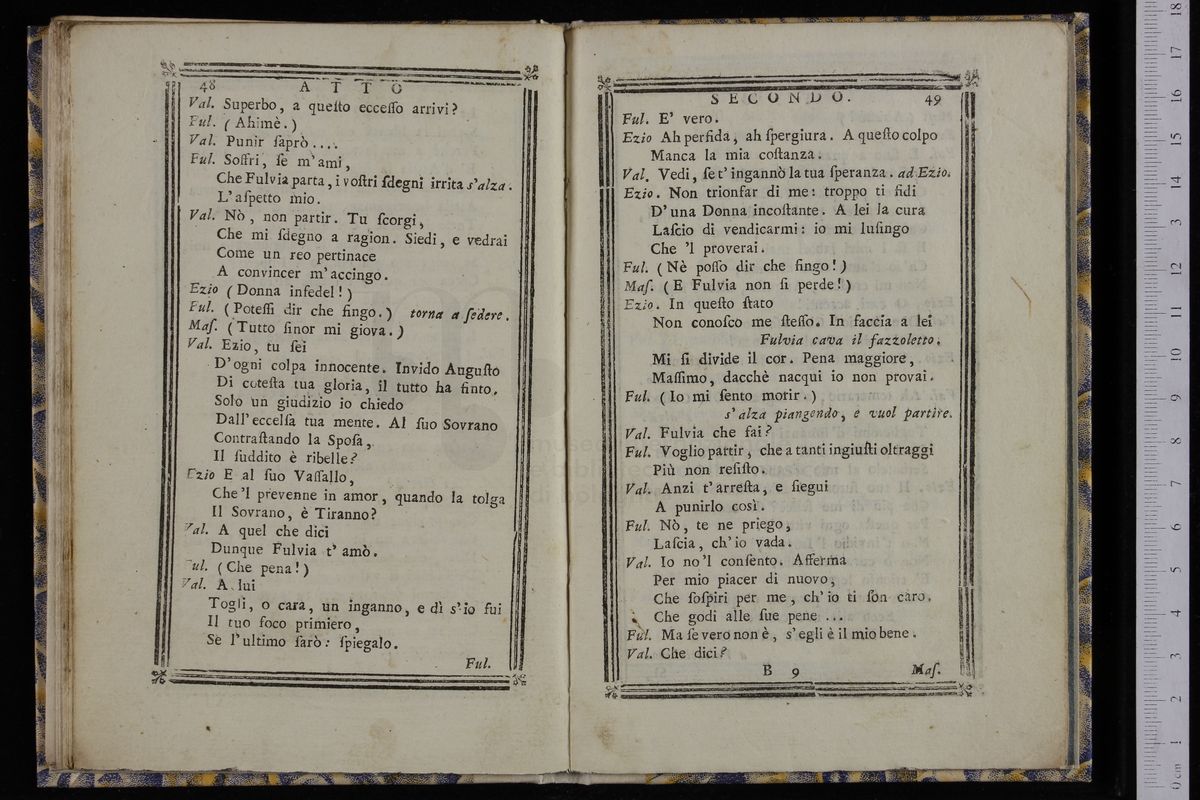 48 ATTO
Val. Superbo, a queſto ecceſſo arrivi?
Ful. (Ahimè.)
Val. Punir ſaprò....
Ful. Soffri, ſe m'ami,
Che Fulvia parta, i voſtri ſdegni irrita s'alza.
L'aſpetto mio.
Val. Nò, non partir. Tu ſcorgi,
Che mi ſdegno a ragion. Siedi, e vedrai
Come un reo pertinace
A convincer m'accingo.
Ezio (Donna infedel!)
Ful. (Poteſſi dir che fingo.) torna a ſedere.
Maſ. (Tutto finor mi giova.)
Val. Ezio, tu ſei
D'ogni colpa innocente. Invido Auguſto
Di coteſta tua gloria, il tutto ha finto.
Solo un giudizio io chiedo
Dall'eccelſa tua mente. Al ſuo Sovrano
Contraſtando la Spoſa,
Il ſuddito è ribelle?
Ezio E al ſuo Vaſſallo,
Che'l prevenne in amor, quando la tolga
Il Sovrano, è Tiranno?
Val. A quel che dici
Dunque Fulvia t'amò.
Ful. (Che pena!)
Val. A lui
Togli, o cara, un inganno, e dì s'io fui
Il tuo foco primiero,
Se l'ultimo ſarò: ſpiegalo.
Ful.
SECONDO. 49
Ful. E' vero.
Ezio Ah perfida, ah ſpergiura. A queſto colpo
Manca la mia coſtanza.
Val. Vedi, ſe t'ingannò la tua ſperanza. ad Ezio.
Ezio. Non trionfar di me: troppo ti fidi
D'una Donna incoſtante. A lei la cura
Laſcio di vendicarmi: io mi luſingo
Che 'l proverai.
Ful. (Nè poſſo dir che fingo!)
Maſ. (E Fulvia non ſi perde!)
Ezio. In queſto ſtato
Non conoſco me ſteſſo. In faccia a lei
Fulvia cava il fazzoletto.
Mi ſi divide il cor. Pena maggiore,
Maſſimo, dacchè nacqui io non provai.
Ful. (Io mi ſento morir.)
s'alza piangendo, e vuol partire.
Val. Fulvia che fai?
Ful. Voglio partir, che a tanti ingiuſti oltraggi
Più non reſiſto.
Val. Anzi t'arreſta, e ſiegui
A punirlo così.
Ful. Nò, te ne priego,
Laſcia, ch'io vada.
Val. Io no'l conſento. Afferma
Per mio piacer di nuovo,
Che ſoſpiri per me, ch'io ti ſon caro,
Che godi alle ſue pene ...
Ful. Ma ſe vero non è, s'egli è il mio bene.
Val. Che dici?
B 9 Maſ.